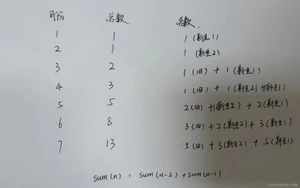 月份 总数 总数
1 1 1 (新生1)
2 1 1 (新生2)
3 2 1 (旧) + 1 (新生1)
4 3 1 (旧) + 1 (新生2) + 1 (新生1)
5 5 2 (旧) + 1 (新生2) + 2 (新生1)
6 8 3 (旧) + 2 (新生2) + 3 (新生1)
7 13 5 (旧) + 3 (新生2) + 5 (新生1)
sum(n) = sum(n-2) + sum(n-1)